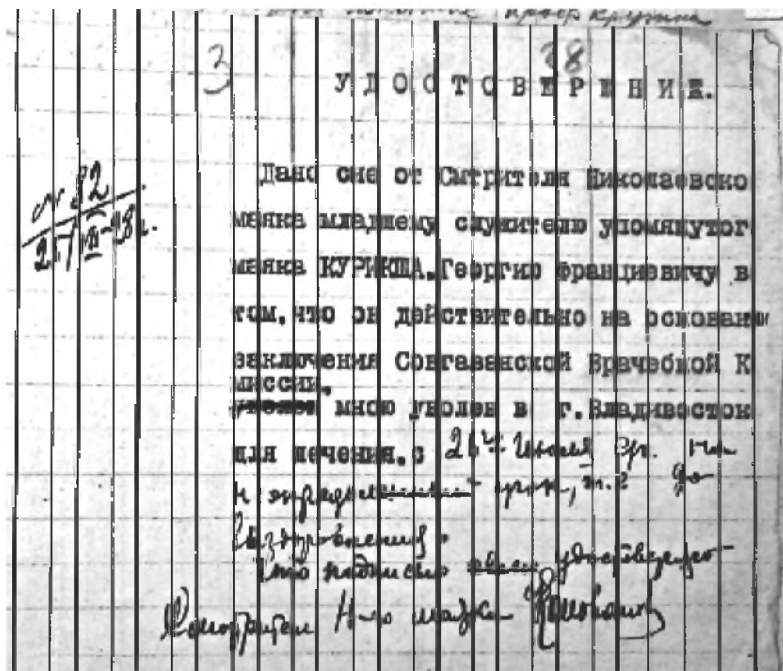 3 38
УДОСТОВЕРЕНИЕ.
№ 82
Дано сие от Смтрителя Николаевско
маяка младшему служителю упомянутог
маяка КУРИКША.Георгию Францевичу в
том,что он действительно на основани
заключения Совгаванской Врачебной К
миссии.
мною уволен в г.Владивосток
для лечения.с 26го Июля с/г. на
срок, т.е до
выздоровления.
Что подписью удостоверяю
Смотритель Н-го маяка